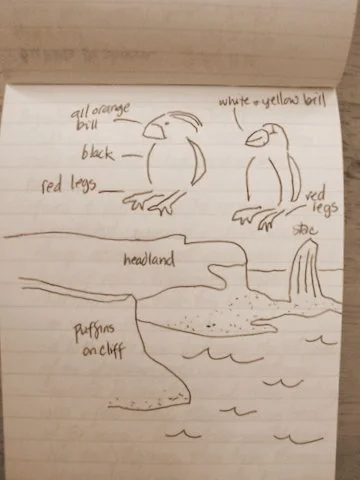 all orange
bill
white + yellow bill
black
red legs
red
legs
stac
headland
puffins
on cliff